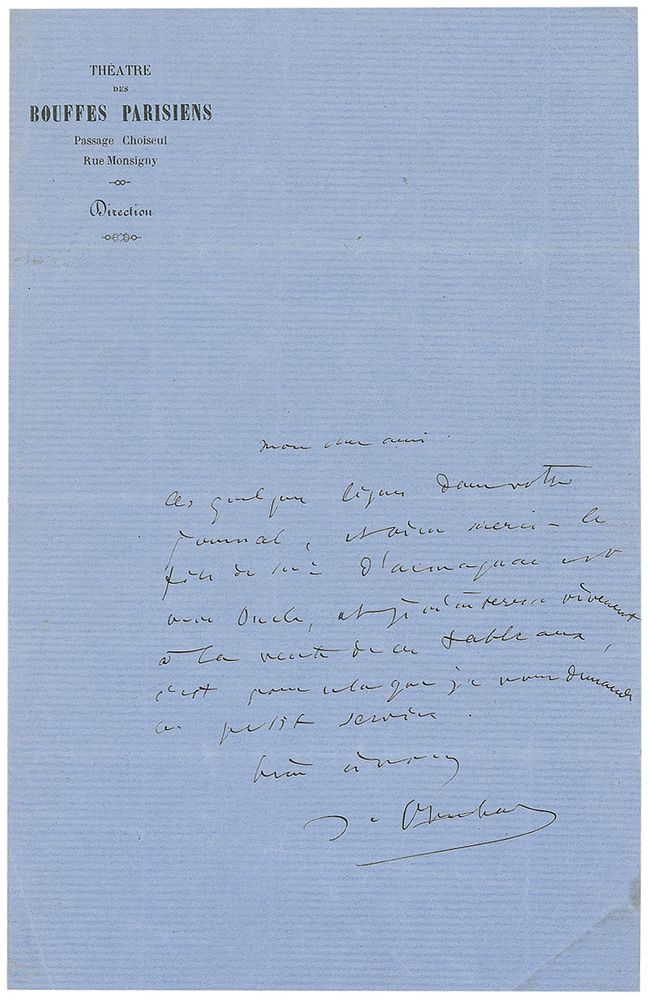 THÉATRE
DES
BOUFFES PARISIENS
Passage Choiseul
Rue Monsigny
Direction
mon cher ami.
ces quelques lignes dans votre
journal, et bien merci – le
fils de d'armagnac est
mon Oncle, et je m'interesse vivement
à la vente de ces tableaux,
c'est pour cela que je vous demande
ce petit service.
bien à vous
Jes Offenbach